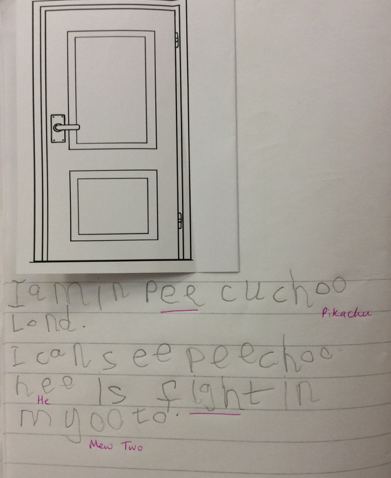 I am in pee cuchoo
Pikachu
Lond.
I can see peechoo
hee is fightin
He
myooto.
Mew Two